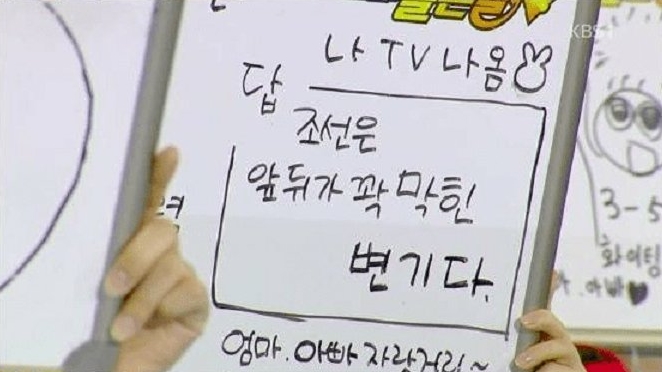 KBS1
나 TV 나옴
답
조선은
앞뒤가 꽉 막힌
변기다.
엄마. 아빠 자랑거리~
3-5
화이팅
아빠♥